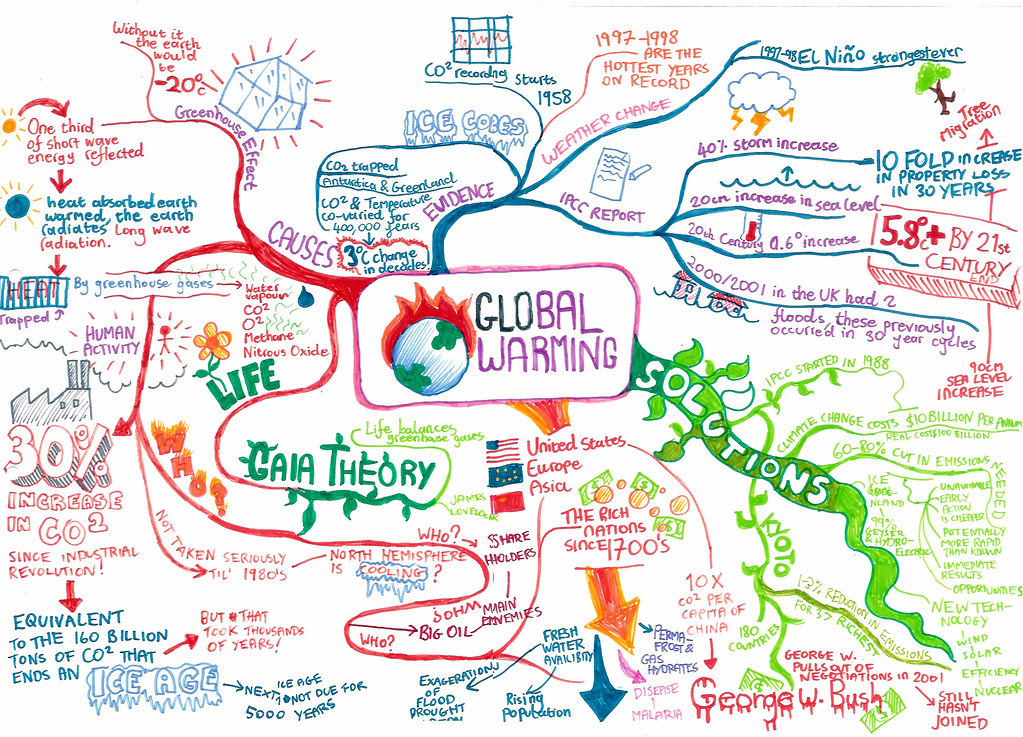 GLOBAL
WARMING
CAUSES
Greenhouse Effect
Without it
the earth
would
be
-20°c
One third
of short wave
energy reflected
heat absorbed earth
warmed, the earth
radiates long wave
radiation.
HEAT
Trapped
By greenhouse gases
Water
vapour
CO²
O²
Methane
Nitrous Oxide
HUMAN
ACTIVITY
30%
INCREASE
IN CO²
SINCE INDUSTRIAL
REVOLUTION!
EQUIVALENT
TO THE 160 BILLION
TONS OF CO² THAT
ENDS AN
ICE AGE
BUT THAT
TOOK THOUSANDS
OF YEARS!
NEXT ICE AGE
NOT DUE FOR
5000 YEARS
LIFE
GAIA THEORY
Life balances
greenhouse gases
JAMES
LOVELOCK
WHO?
NOT TAKEN SERIOUSLY
TIL' 1980's
NORTH HEMISPHERE
IS COOLING?
WHO?
$HARE
HOLDERS
MAIN
ENEMIES
JOHN
WHO?
BIG OIL
EVIDENCE
ICE CORES
CO² recording starts
1958
CO2 trapped
Antarctica & Greenland
CO² & Temperature
co-varied for
400,000 years
3°c change
in decades!
WEATHER CHANGE
1997-1998
ARE THE
HOTTEST YEARS
ON RECORD
1997-98 EL Niño strongest ever
IPCC REPORT
40% storm increase
10 FOLD INCREASE
IN PROPERTY LOSS
IN 30 YEARS
Tree
Migration
20cm increase in sea level
20th Century 0.6° increase
5.8°c+ BY 21st
CENTURY
END
90cm
SEA LEVEL
INCREASE
2000/2001 in the UK had 2
floods, these previously
occurred in 30 year cycles
SOLUTIONS
IPCC STARTED IN 1988
CLIMATE CHANGE COSTS $10 BILLION PER ANNUM
REAL COST $100 BILLION
60-80% CUT IN EMISSIONS
NEEDED
UNAVOIDABLE
EARLY
ACTION
IS CHEAPER
POTENTIALLY
MORE RAPID
THAN KNOWN
IMMEDIATE
RESULTS
OPPORTUNITIES
ICE
LAND
99%
GEYSER
& HYDRO-
ELECTRIC
NEW TECH-
NOLOGY
WIND
SOLAR
EFFICIENCY
NUCLEAR
KYOTO
180
COUNTRIES
1-3% REDUCTION IN EMISSIONS
FOR 37 RICHEST
GEORGE W.
PULLS OUT OF
NEGOTIATIONS IN 2001
STILL
HASN'T
JOINED
George W. Bush
United States
Europe
Asia
THE RICH
NATIONS
SINCE 1700'S
10X
CO² PER
CAPITA OF
CHINA
PERMA-
FROST &
GAS
HYDRATES
DISEASE
MALARIA
FRESH
WATER
Rising
Population
OF
FLOOD
DROUGHT